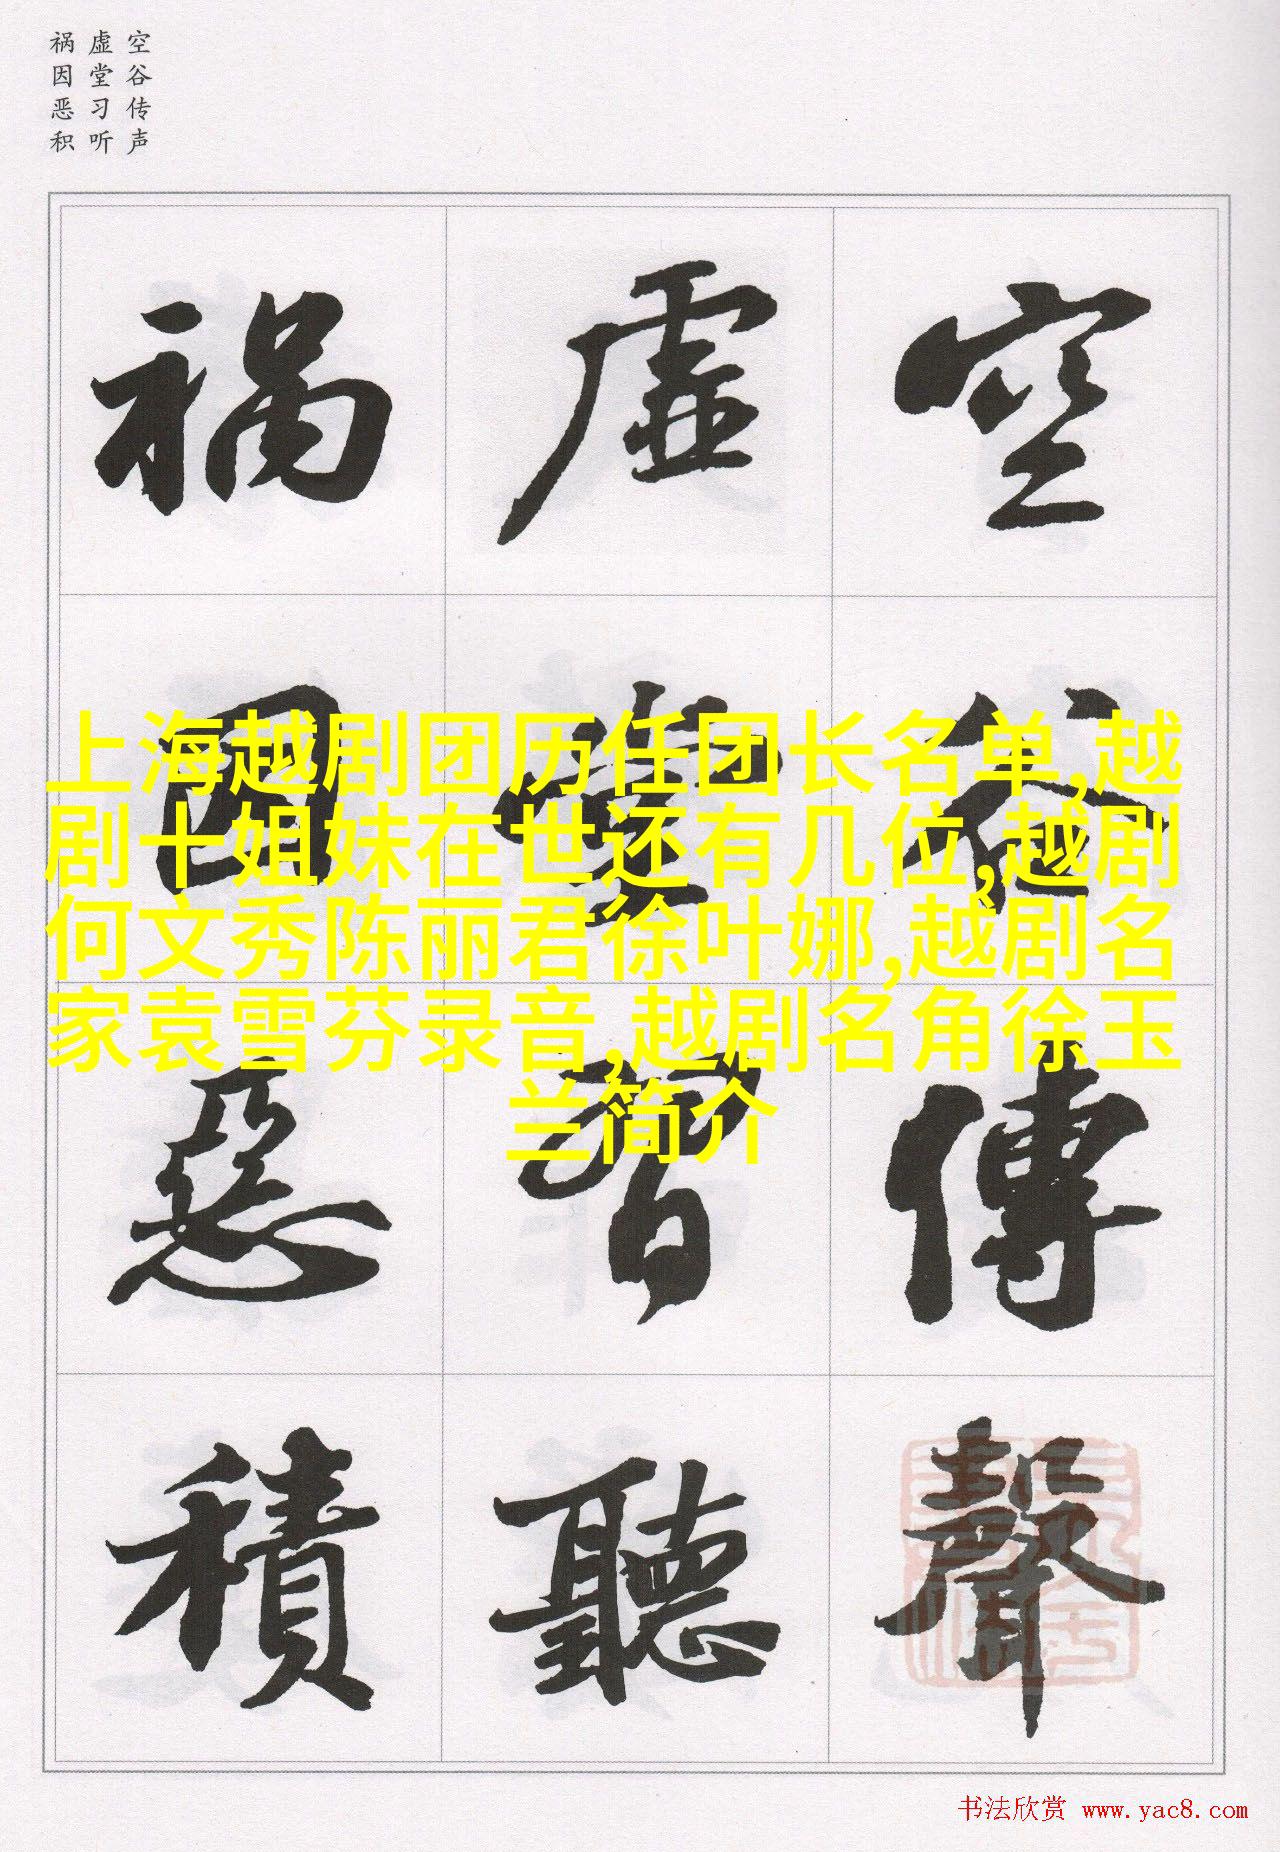 空谷传声
虚堂习听
祸因恶积
空谷傳聲
虛堂習聽
禍因惡積
上海越剧团历任团长名单,越
剧十姐妹在世还有几位,越剧
何文秀陈丽君徐叶娜,越剧名
家袁雪芬录音,越剧名角徐玉
兰简介
书法欣赏 www.yac8.com